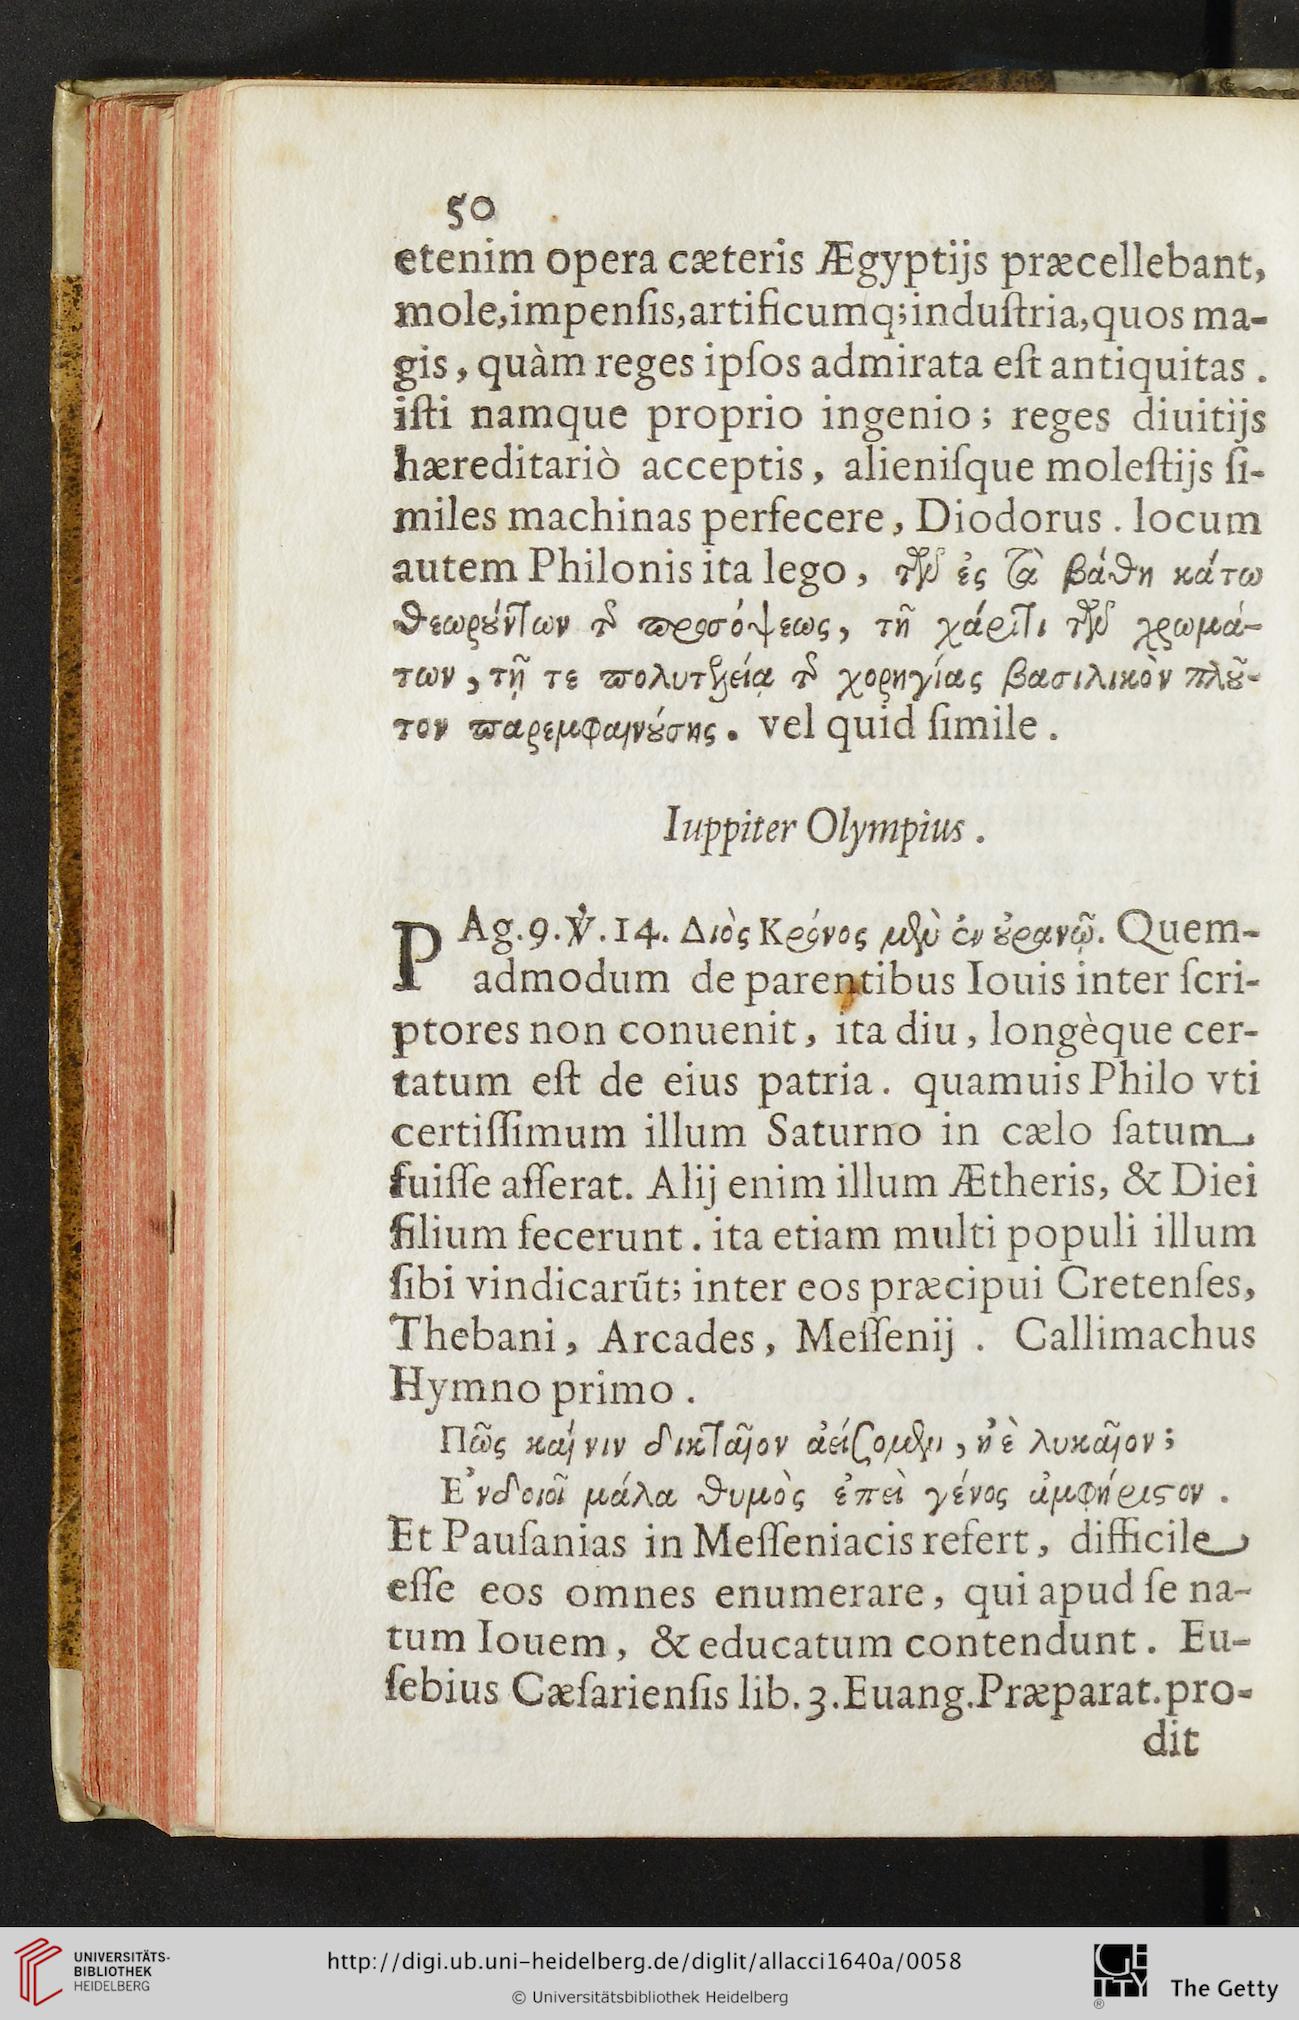 50
etenim opera cæteris Ægyptijs præcellebant,
mole,impenſis,artificumq;induſtria,quos ma-
gis, quàm reges ipſos admirata eſt antiquitas .
iſti namque proprio ingenio; reges diuitijs
hæreditariò acceptis, alieniſque moleſtijs ſi-
miles machinas perfecere, Diodorus . locum
autem Philonis ita lego, τῶν ἐς τὰ βάθη κάτω
θεωρούντων τῆς προσόψεως, τῆ χάριτι τῶν χρωμά-
των, τῇ τε πολυτελείᾳ τῆς χορηγίας βασιλικὸν πλοῦ-
τον παρεμφαινούσης. vel quid ſimile .
Iuppiter Olympius .
PAg.9.V.14. Διὸς Κρόνος μὲν ἐν οὐρανῷ. Quem-
admodum de parentibus Iouis inter ſcri-
ptores non conuenit, ita diu, longèque cer-
tatum eſt de eius patria. quamuis Philo vti
certiſſimum illum Saturno in cælo ſatum
fuiſſe aſſerat. Alij enim illum Ætheris, & Diei
filium fecerunt. ita etiam multi populi illum
ſibi vindicarũt; inter eos præcipui Cretenſes,
Thebani, Arcades, Meſſenij . Callimachus
Hymno primo .
Πῶς καί νιν δικταῖον ἀείσομεν, ἠὲ λυκαῖον;
Ἐν δοιοῖ μάλα θυμὸς ἐπεὶ γένος ἀμφήριστον .
Et Pauſanias in Meſſeniacis refert, difficile
eſſe eos omnes enumerare, qui apud ſe na-
tum Iouem, & educatum contendunt. Eu-
ſebius Cæſarienſis lib.3.Euang.Præparat.pro-
dit
UNIVERSITÄTS-
BIBLIOTHEK
HEIDELBERG
http://digi.ub.uni-heidelberg.de/diglit/allacci1640a/0058
© Universitätsbibliothek Heidelberg
GETTY
®
The Getty